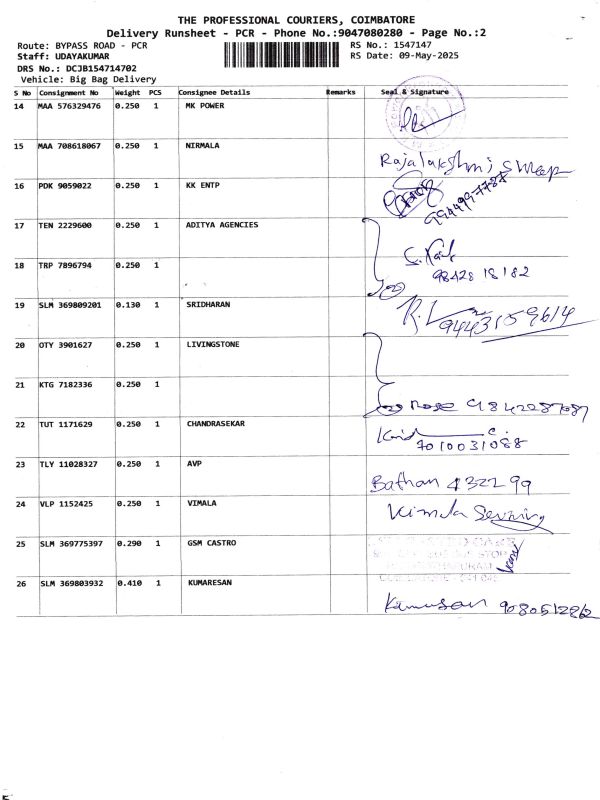 THE PROFESSIONAL COURIERS, COIMBATORE
Delivery Runsheet - PCR - Phone No.:9047080280 - Page No.:2
Route: BYPASS ROAD - PCR RS No.: 1547147
Staff: UDAYAKUMAR RS Date: 09-May-2025
DRS No.: DCJB154714702
Vehicle: Big Bag Delivery
S No Consignment No Weight PCS Consignee Details Remarks Seal & Signature
14 MAA 576329476 0.250 1 MK POWER
15 MAA 708618067 0.250 1 NIRMALA
Rajalakshmi
16 PDK 9059022 0.250 1 KK ENTP
9944997787
17 TEN 2229600 0.250 1 ADITYA AGENCIES
18 TRP 7896794 0.250 1
98428 18182
19 SLM 369809201 0.130 1 SRIDHARAN
9443159614
20 OTY 3901627 0.250 1 LIVINGSTONE
21 KTG 7182336 0.250 1
Rose
22 TUT 1171629 0.250 1 CHANDRASEKAR
7010031088
23 TLY 11028327 0.250 1 AVP
Bathan 432299
24 VLP 1152425 0.250 1 VIMALA
Vimla
25 SLM 369775397 0.290 1 GSM CASTRO
26 SLM 369803932 0.410 1 KUMARESAN